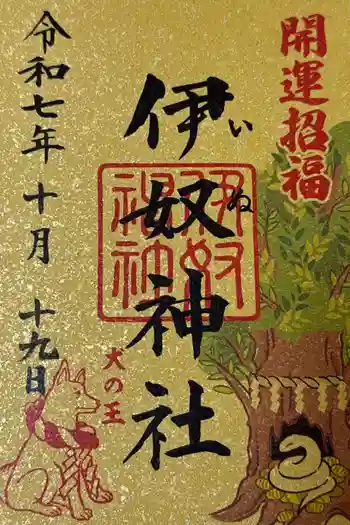 開運招福
伊奴神社
いぬ
伊奴神社
犬の王
令和七年十月十九日